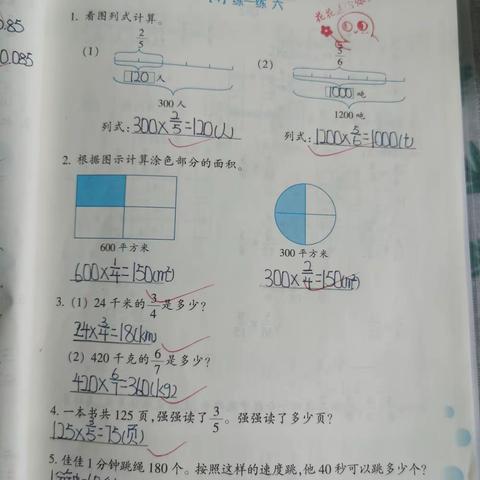 练一练 六
0.85
0.085
1. 看图列式计算。
(1) 2/5
120 人
300 人
列式: 300×2/5=120(人)
(2) 5/6
1000 吨
1200 吨
列式: 1200×5/6=1000(t)
2. 根据图示计算涂色部分的面积。
600 平方米
600×1/4=150(m²)
300 平方米
300×2/4=150(m²)
3. (1) 24 千米的 3/4 是多少?
24×3/4=18(km)
(2) 420 千克的 6/7 是多少?
420×6/7=360(kg)
4. 一本书共 125 页,强强读了 3/5。强强读了多少页?
125×3/5=75(页)
5. 佳佳 1 分钟跳绳 180 个。按照这样的速度跳,他 40 秒可以跳多少个?